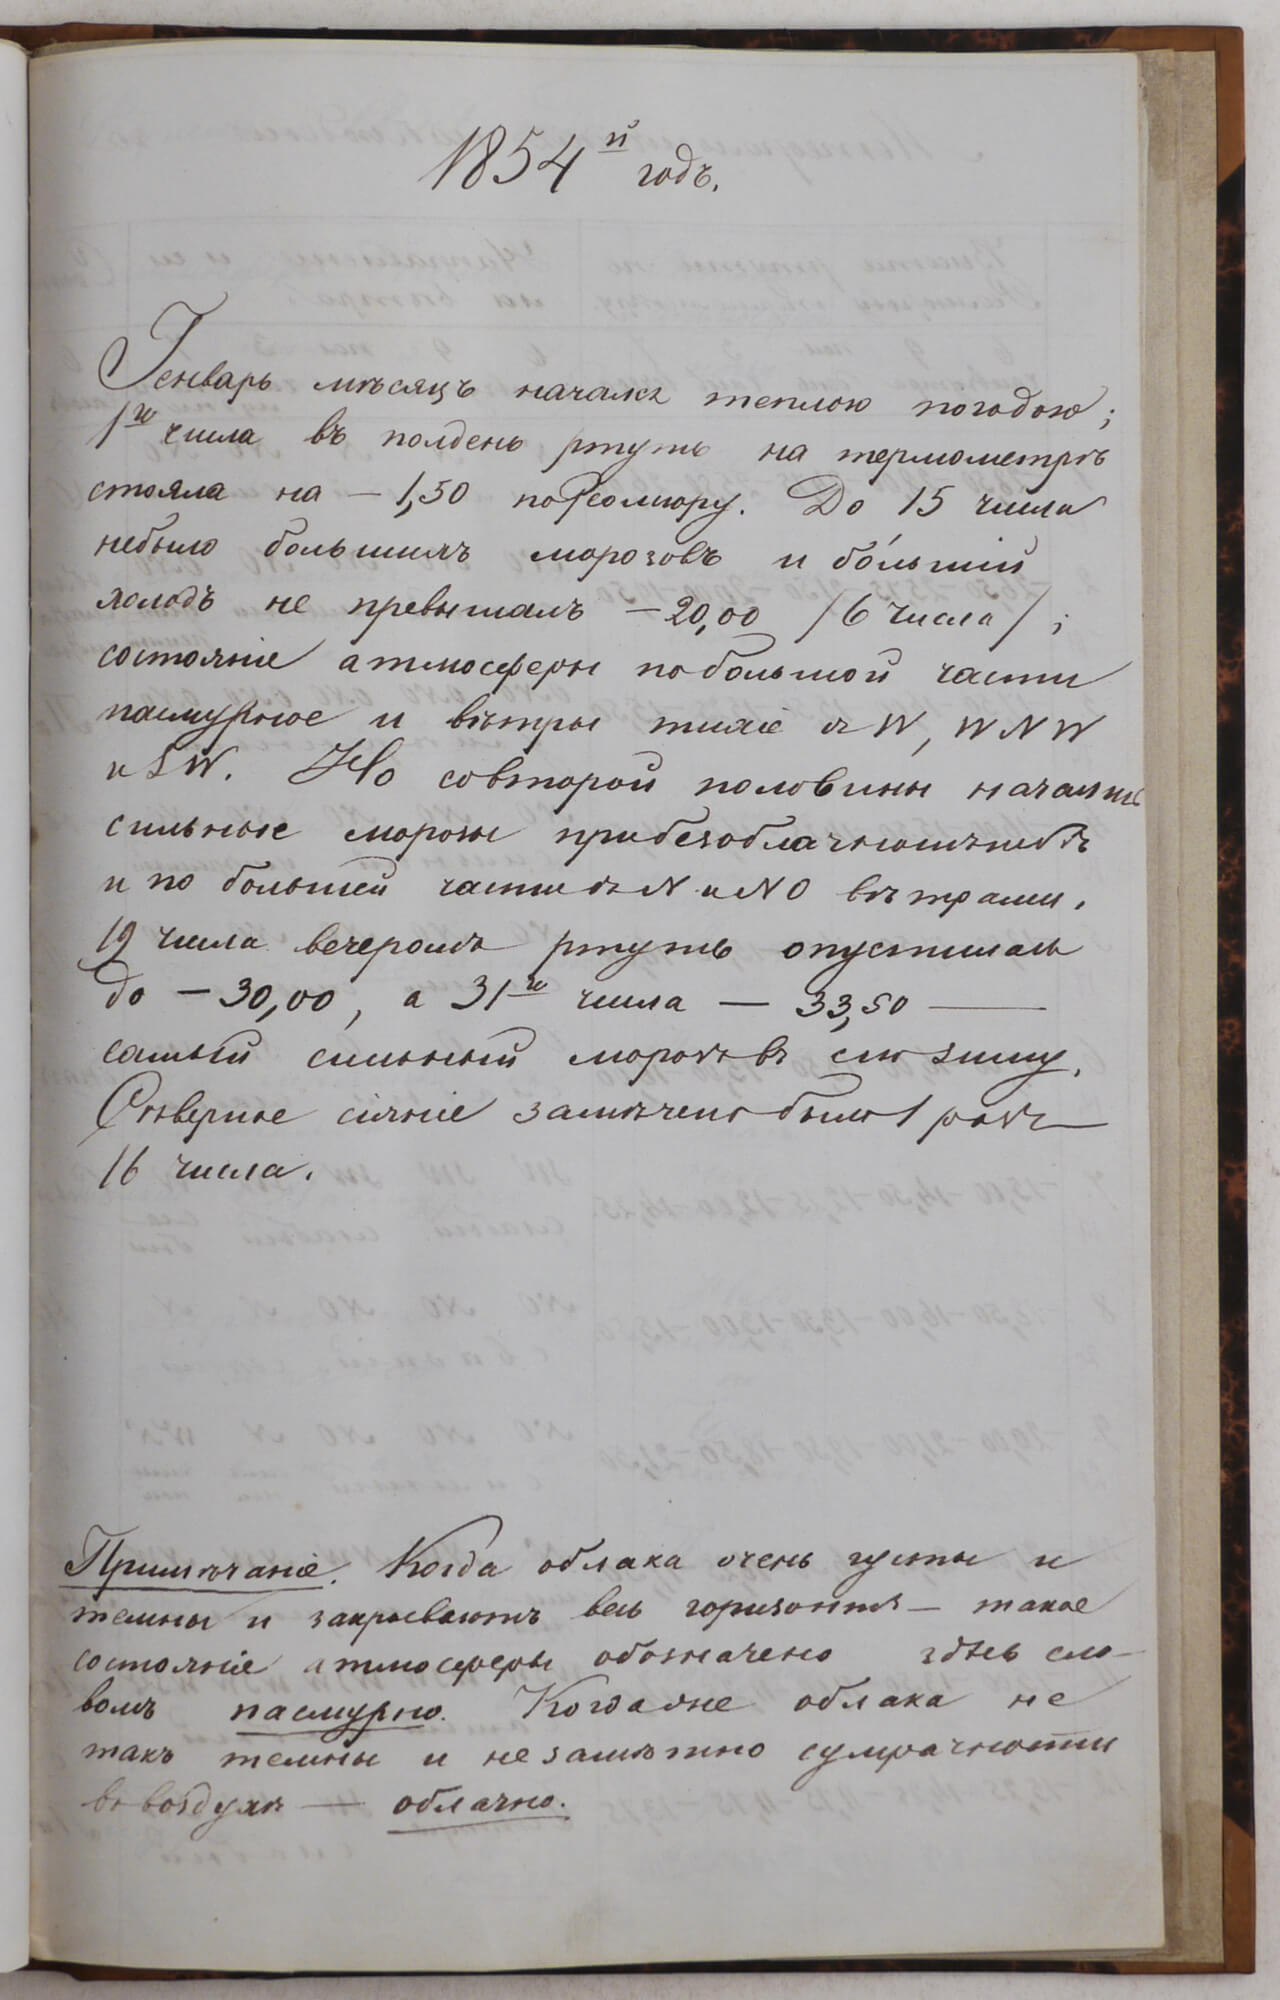 1854й годъ.
Генварь мѣсяцъ начался теплою погодою;
1го числа въ полдень ртуть на термометрѣ
стояла на — 1,50 по Реомюру. До 15 числа
небыло большихъ морозовъ и бо́льшій
холодъ не превышалъ — 20,00 /6 числа/;
состояніе атмосферы по большой части
пасмурное и вѣтры тихіе съ W, WNW
и SW. Но со второй половины начались
сильные морозы при безоблачномъ небѣ
и по большей части съ N и NO вѣтрами.
19 числа вечеромъ ртуть опустилась
до — 30,00, а 31го числа — 33,50 —
самый сильный морозъ въ сію зиму.
Сѣверное сіяніе замѣчено было 1 разъ
16 числа.
Примѣчаніе. Когда облака очень густы и
темны и закрываютъ весь горизонтъ — такое
состояніе атмосферы обозначено здѣсь сло-
вомъ пасмурно. Когда же облака не
такъ темны и не замѣтно сумрачности
въ воздухѣ — облачно.